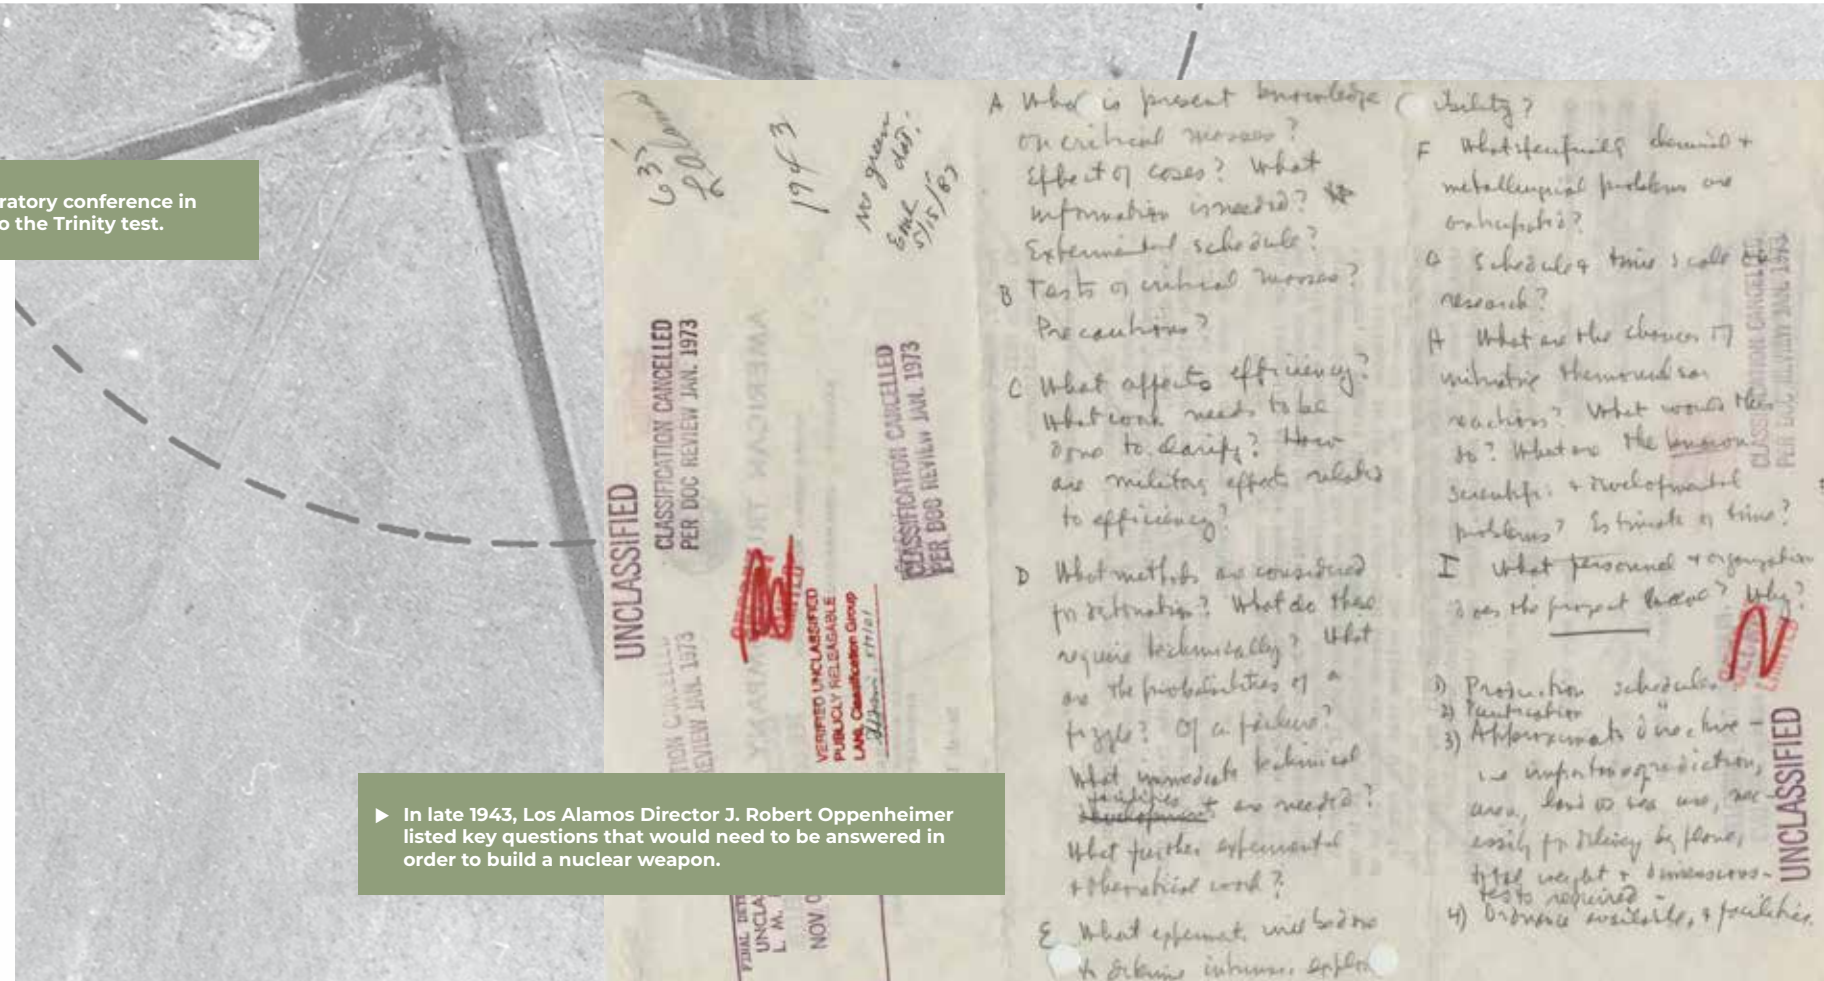 ratory conference in
o the Trinity test.
In late 1943, Los Alamos Director J. Robert Oppenheimer
listed key questions that would need to be answered in
order to build a nuclear weapon.
637
1943
No green
dot.
5/15/83
UNCLASSIFIED
CLASSIFICATION CANCELLED
PER DOC REVIEW JAN. 1973
CLASSIFICATION CANCELLED
PER DOC REVIEW JAN. 1973
REVIEW JAN. 1973
VERIFIED UNCLASSIFIED
PUBLICLY RELEASABLE
LANL Classification Group
FINAL DET
UNCLA
L. M.
NOV 0
A What is present knowledge
on critical masses?
Effect of cases? What
information is needed?
Experimental schedule?
B Tests of critical masses?
Precautions?
C What affects efficiency?
What work needs to be
done to clarify? How
are military effects related
to efficiency?
D What methods are considered
for detonation? What do these
require technically? What
are the probabilities of a
fizzle? Of a failure?
What immediate technical
facilities are needed?
What further experimental
+ theoretical work?
E What experiments
to determine
sibility?
F What chemical +
metallurgical problems are
anticipated?
G Schedule + time scale
research?
H What are the chances of
initiating thermonuclear
reactions? What would this
do? What are the known
scientific + developmental
problems? Estimate of time?
I What personnel + organization
does the project have? Why?
1) Production schedules
2) Purification "
3) Approximate directive -
area, land or sea use, nec
essity for delivery by plane,
total weight + dimensions-
tests required -
4) Ordnance available, + facilities.
CLASSIFICATION CANCELLED
PER DOC REVIEW JAN. 1973
UNCLASSIFIED